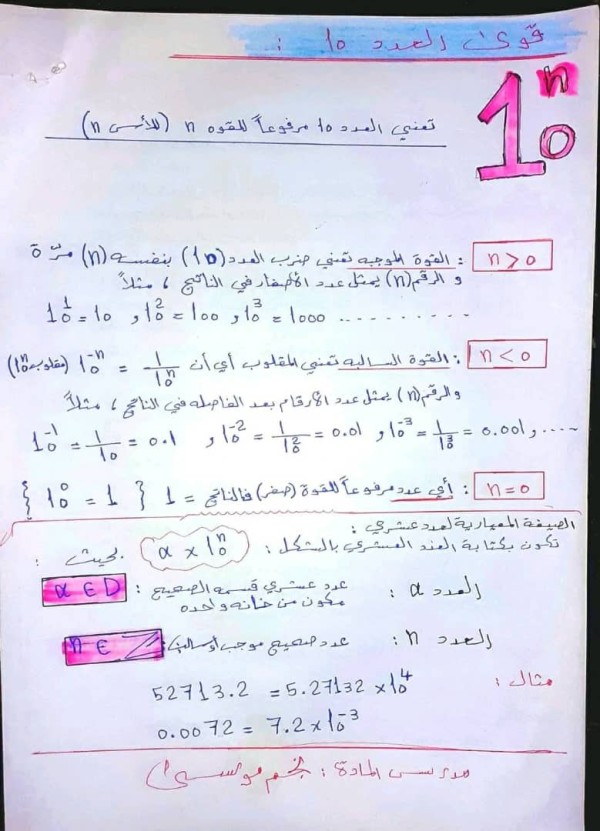 قوى العدد 10 :
10ⁿ
تعني العدد 10 مرفوعاً للقوه n (للأس n)
n > 0 : القوة الموجبه تعني ضرب العدد (10) بنفسه (n) مرّة
و الرقم (n) يمثل عدد الأصفار في الناتج ، مثلاً
10¹ = 10 و 10² = 100 و 10³ = 1000 ..........
n < 0 : القوة السالبه تعني المقلوب أي أن 10⁻ⁿ = 1/10ⁿ (مقلوب 10ⁿ)
والرقم (n) يمثل عدد الأرقام بعد الفاصله في الناتج ، مثلاً
10⁻¹ = 1/10 = 0.1 و 10⁻² = 1/10² = 0.01 و 10⁻³ = 1/10³ = 0.001 و ....
n = 0 : أي عدد مرفوعاً للقوة (صفر) فالناتج = 1 { 10⁰ = 1 }
الصيغة المعيارية لعدد عشري :
تكون بكتابة العدد العشري بالشكل : a × 10ⁿ بحيث :
العدد a : عدد عشري قسمه الصحيح a ∈ D
مكون من خانه واحده
العدد n : عدد صحيح موجب أو سالب n ∈ Z
مثال : 52713.2 = 5.27132 × 10⁴
0.0072 = 7.2 × 10⁻³
مدرس المادة : نجم موسى